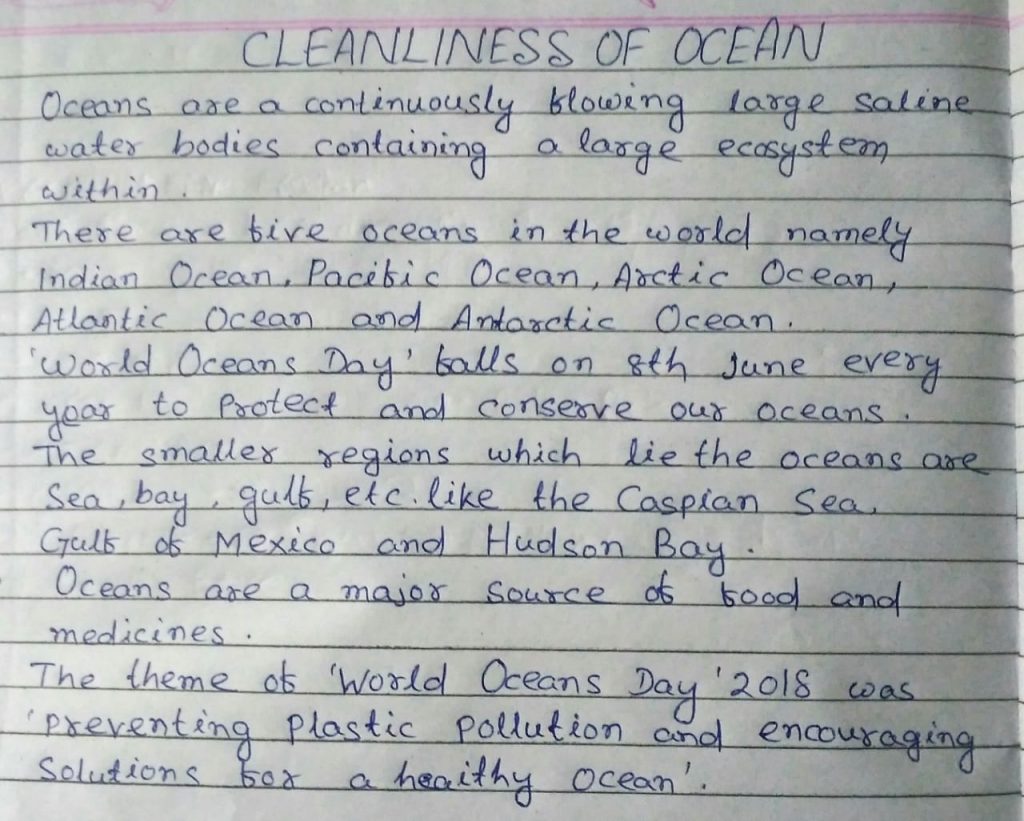 CLEANLINESS OF OCEAN
Oceans are a continuously flowing large saline
water bodies containing a large ecosystem
within.
There are five oceans in the world namely
Indian Ocean, Pacific Ocean, Arctic Ocean,
Atlantic Ocean and Antarctic Ocean.
'World Oceans Day' falls on 8th June every
year to Protect and conserve our oceans.
The smaller regions which lie the oceans are
Sea, bay, gulf, etc. like the Caspian Sea,
Gulf of Mexico and Hudson Bay.
Oceans are a major source of food and
medicines.
The theme of 'World Oceans Day' 2018 was
'preventing plastic pollution and encouraging
Solutions for a healthy ocean'.